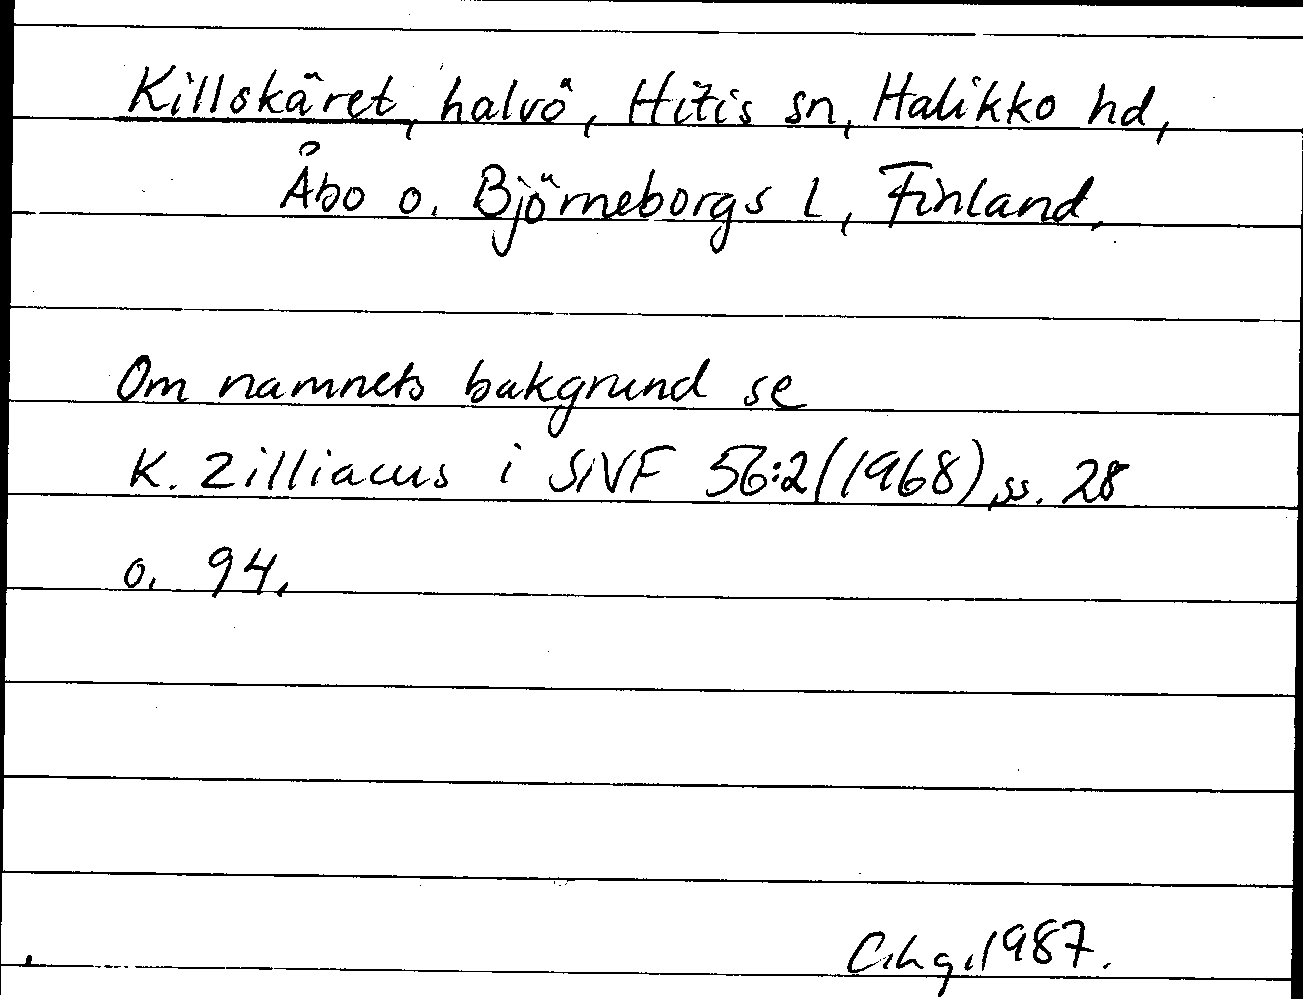 Killskäret, halvö, Hitis sn, Halikko hd,
Åbo o. Björneborgs l, Finland.
Om namnets bakgrund se
K. Zilliacus i SNF 56:2 (1968), ss. 28
o. 94.
C.hg. 1987.